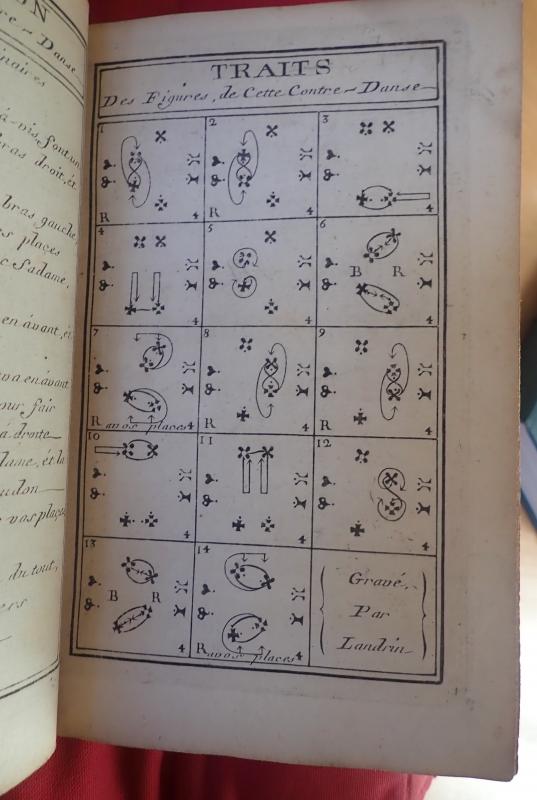 ON
re-Danse
naires
á-vis, font un
ras droit, ét
bras gauche,
s plaçes
c sadame,
en ávant, et
va en ávant
our fair
á droite
dame, ét la
udon
vos plaçes
du tout,
ers
TRAITS
Des Figures, de Cette Contre-Danse
1 2 3
R 4 R 4 4
4 5 6
B R
4 4 4
7 8 9
R a nos places 4 R 4 R 4
10 11 12
4 4 4
13 14
B R
4 R a nos places 4
Gravé,
Par
Landrin